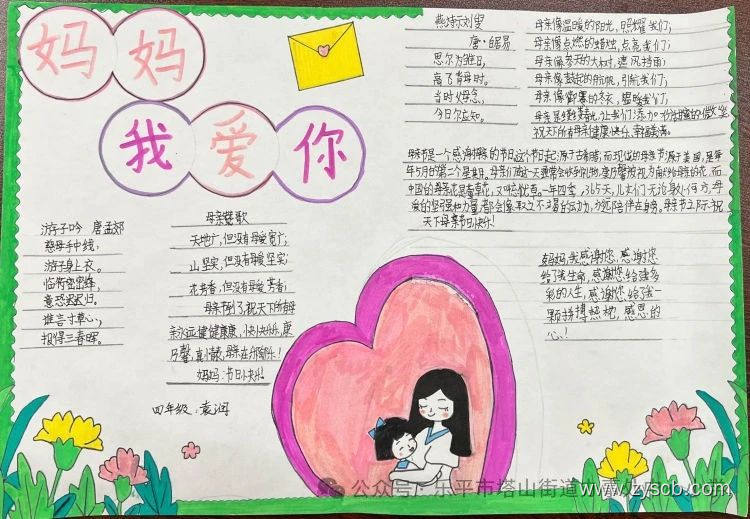 妈妈
我爱你
游子吟 唐孟郊
慈母手中线,
游子身上衣。
临行密密缝,
意恐迟迟归。
谁言寸草心,
报得三春晖。
母亲赞歌
天地广,但没有母爱宽广;
山坚实,但没有母爱坚实;
花芳香,但没有母爱芳香;
母亲节到了,祝天下所有母
亲永远健健康康,快快乐乐,
妈妈:节日快乐!
四年级:袁润
燕诗示刘叟
唐·白居易
思尔为雏日,
高飞背母时。
当时父母念,
今日尔应知。
母亲像温暖的阳光,照耀我们;
母亲像点燃的蜡烛,点亮我们;
母亲像参天的大树,遮风挡雨;
母亲像鼓起的船帆,引航我们;
母亲像御寒的冬衣,温暖我们;
祝天下所有母亲健康快乐,幸福美满。
母亲节是一个感谢母亲的节日,这个节日起源于古希腊;而现代的母亲节源于美国,是每
年5月的第二个星期日。母亲们在这一天通常会收到礼物,康乃馨被视为献给母亲的花,而
中国的母亲花是萱草花,又叫忘忧草。一年四季,365天,儿女们无论身处何方,母
爱的坚强和力量都会像取之不竭的动力,永远陪伴在身旁。母亲节之际,祝
天下母亲节日快乐!
妈妈,我感谢您,感谢您
给了我生命,感谢您给谱多
彩的人生,感谢您给了我一
心!
公众号:乐平市塔山街道
www.zyscb.com